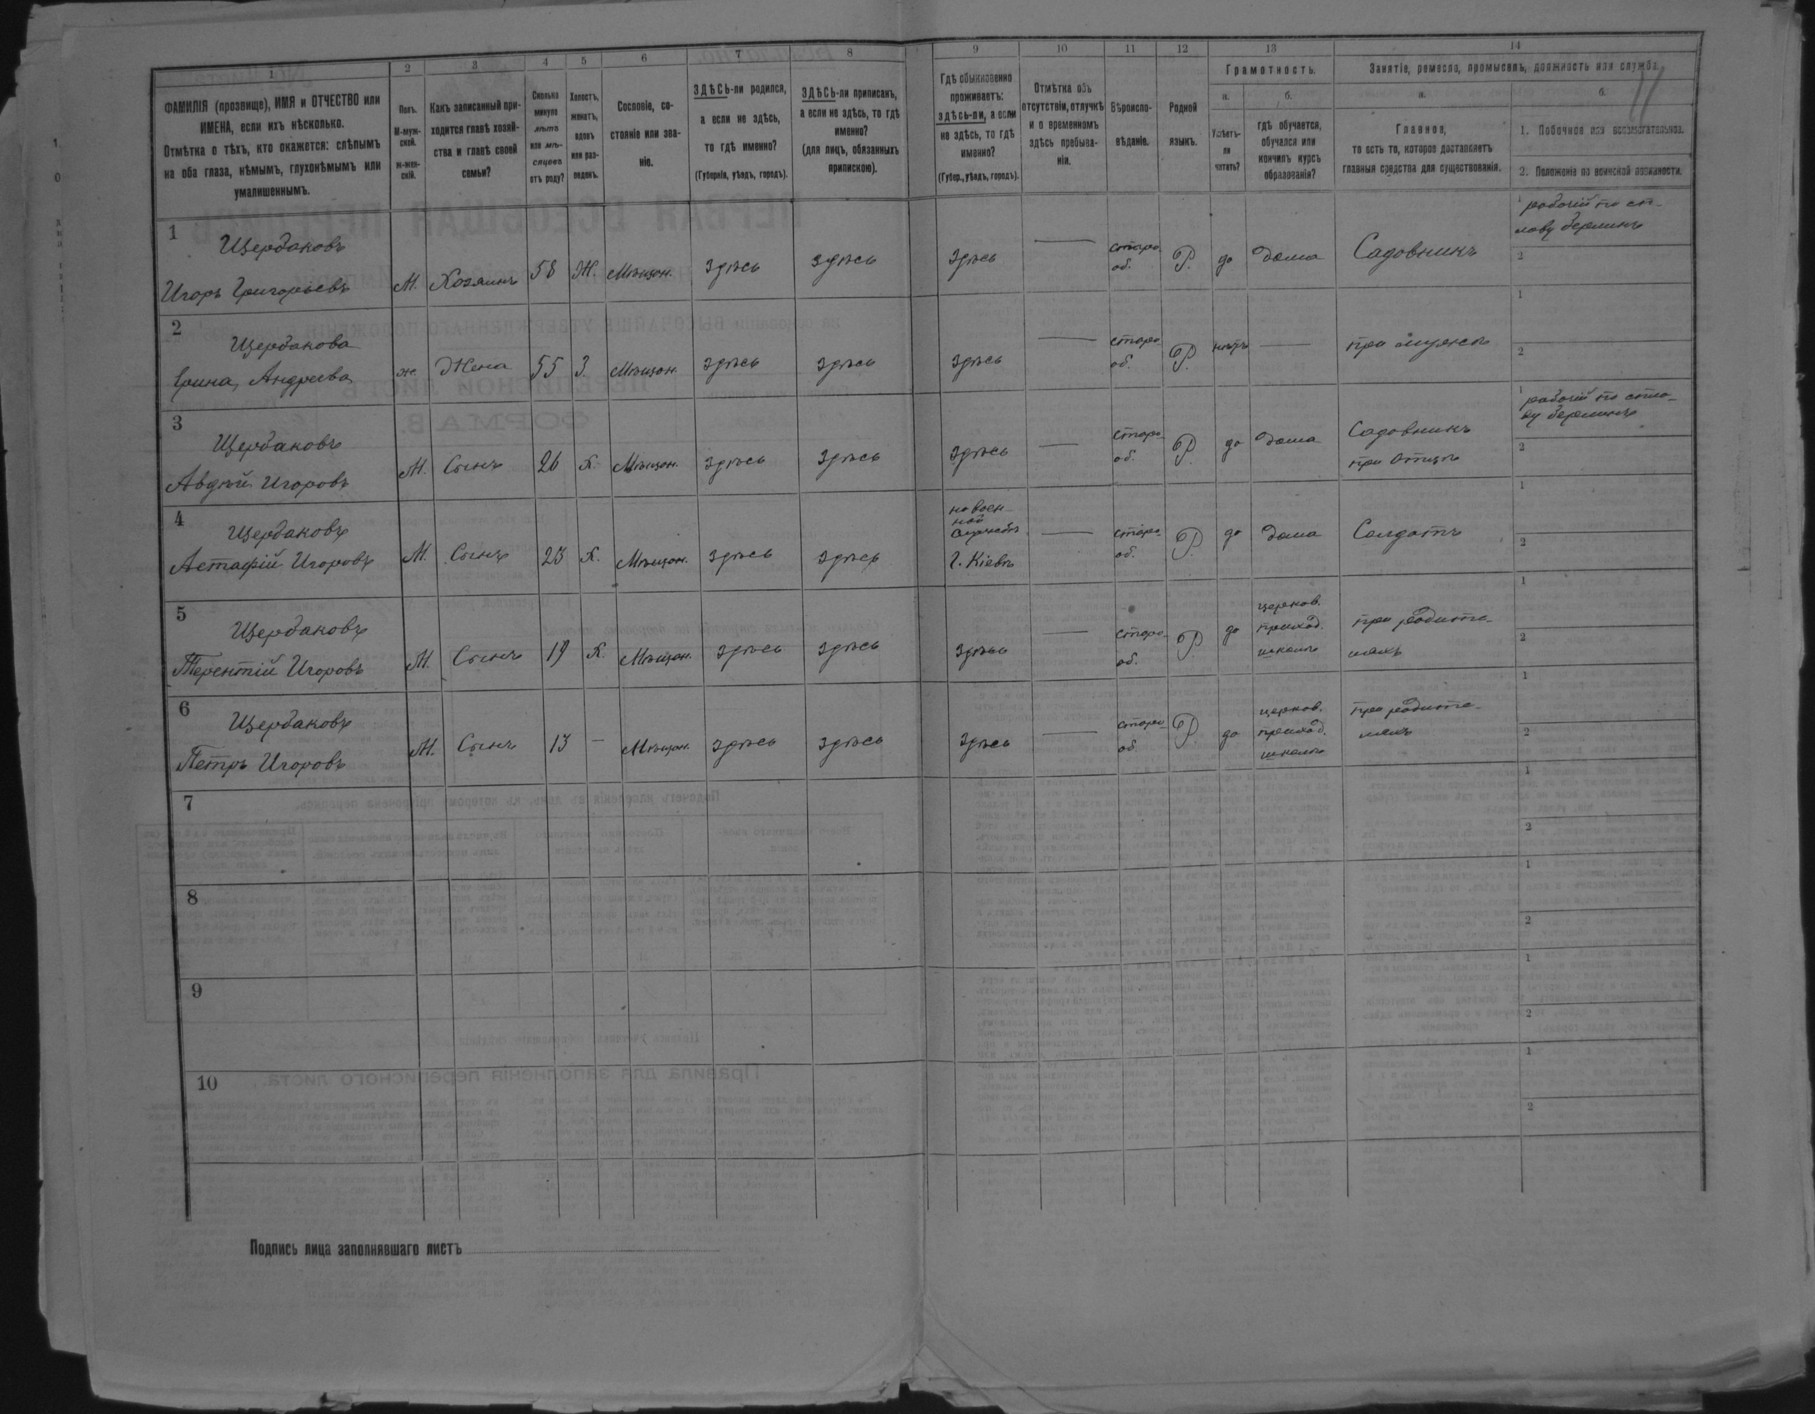 1 2 3 4 5 6 7 8 9 10 11 12 13 14
ФАМИЛІЯ (прозвище), ИМЯ и ОТЧЕСТВО или
ИМЕНА, если ихъ нѣсколько.
Отмѣтка о тѣхъ, кто окажется: слѣпымъ
на оба глаза, нѣмымъ, глухонѣмымъ или
умалишеннымъ.
Полъ.
М-муж-
ской.
ж-жен-
скій.
Какъ записанный при-
ходится главѣ хозяй-
ства и главѣ своей
семьи?
Сколько
минуло
лѣтъ
или мѣ-
сяцевъ
отъ роду?
Холостъ,
женатъ,
вдовъ
или раз-
веденъ.
Сословіе, со-
стояніе или зва-
ніе.
ЗДѢСЬ-ли родился,
а если не здѣсь,
то гдѣ именно?
(Губернія, уѣздъ, городъ).
ЗДѢСЬ-ли приписанъ,
а если не здѣсь, то гдѣ
именно?
(для лицъ, обязанныхъ
припискою).
Гдѣ обыкновенно
проживаетъ:
здѣсь-ли, а если
не здѣсь, то гдѣ
именно?
(Губер., уѣздъ, городъ).
Отмѣтка объ
отсутствіи, отлучкѣ
и о временномъ
здѣсь пребыва-
ніи.
Вѣроиспо-
вѣданіе.
Родной
языкъ.
Грамотность.
а.
Умѣетъ-
ли
читать?
б.
гдѣ обучается,
обучался или
кончилъ курсъ
образованія?
Занятіе, ремесло, промыселъ, должность или служба.
а.
Главное,
то есть то, которое доставляетъ
главныя средства для существованія.
б.
1. Побочное или вспомогательное.
2. Положеніе по воинской повинности.
1 Щербаковъ
Игоръ Григорьевъ М. Хозяинъ 58 Ж. Мѣщан. здѣсь здѣсь здѣсь — старо об. Р. да дома Садовникъ
1 рабочій по
2
2 Щербакова
Ирина Андреева ж. Жена 55 З. Мѣщан. здѣсь здѣсь здѣсь — старо об. Р. нѣтъ — при мужѣ
1
2
3 Щербаковъ
Авдѣй Игоровъ М. Сынъ 26 Х. Мѣщан. здѣсь здѣсь здѣсь — старо об. Р. да дома Садовникъ
при отцѣ
1 рабочій по
2
4 Щербаковъ
Астафій Игоровъ М. Сынъ 23 Х. Мѣщан. здѣсь здѣсь
на воен-
ной
службѣ
г. Кіевъ — старо об. Р. да дома Солдатъ
1
2
5 Щербаковъ
Терентій Игоровъ М. Сынъ 19 Х. Мѣщан. здѣсь здѣсь здѣсь — старо об. Р. да
церков.
приход.
школѣ
при родите-
ляхъ
1
2
6 Щербаковъ
Петръ Игоровъ М. Сынъ 13 — Мѣщан. здѣсь здѣсь здѣсь — старо об. Р. да
церков.
приход.
школѣ
при родите-
ляхъ
1
2
7
1
2
8
1
2
9
1
2
10
1
2
Подпись лица заполнявшаго листъ